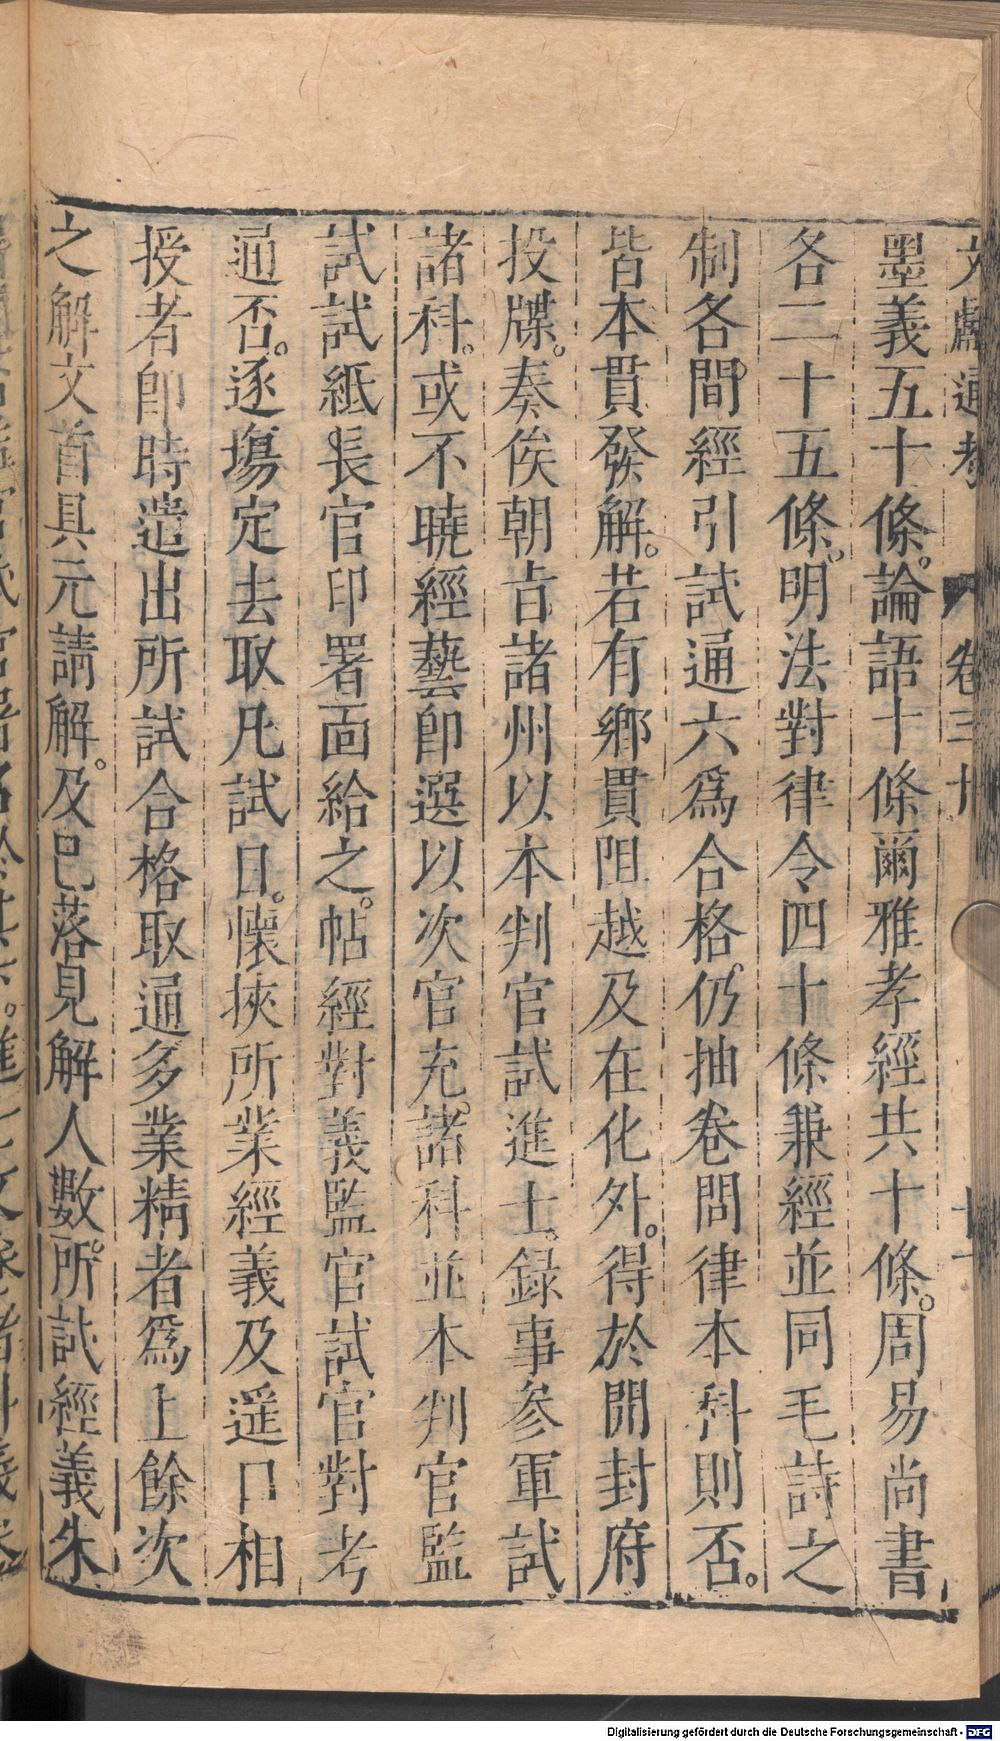 文獻通考 卷三十
墨義五十條。論語十條爾雅孝經共十條。周易尚書
各二十五條。明法對律令四十條兼經並同毛詩之
制各間經引試通六爲合格。仍抽卷問律本科則否。
皆本貫發解。若有鄉貫阻越及在化外。得於開封府
投牒。奏俟朝旨諸州以本判官試進士。録事參軍試
諸科。或不曉經藝卽選以次官充。諸科並本判官監
試試紙長官印署面給之。帖經對義監官試官對考
通否。逐場定去取凡試日。懷挾所業經義及遥口相
授者卽時遣出所試合格取通多業精者爲上餘次
之解文首具元請解。及已落見解人數。所試經義朱
Digitalisierung gefördert durch die Deutsche Forschungsgemeinschaft - DFG